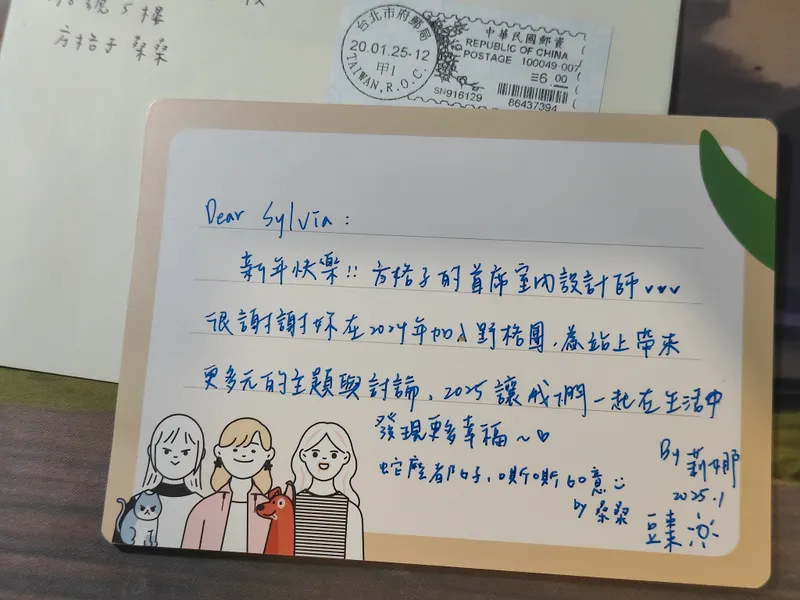 號5樓
方格子 桑桑
台北市府郵局
20.01.25-12
甲1
TAIWAN, R.O.C.
中華民國郵資
REPUBLIC OF CHINA
POSTAGE 100049-007
6.00
SN916129
86437394
Dear Sylvia:
新年快樂!! 方格子的首席室內設計師
很謝謝妳在2024年加入野格團,為站上帶來
更多元的主題與討論,2025讓我們一起在生活中
發現更多幸福~♡
蛇麼都好,
by 桑桑
By 莉娜
2025.1
豆棗